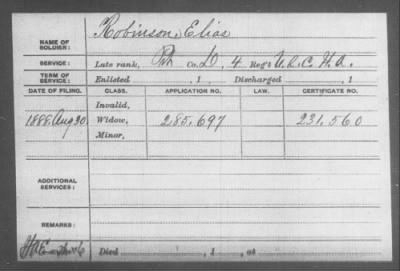 NAME OF SOLDIER: Robinson, Elias
SERVICE: Late rank, Pvt Co. D, 4 Reg't U.S.C.H.A.
TERM OF SERVICE: Enlisted , 1 Discharged , 1
DATE OF FILING. CLASS. APPLICATION NO. LAW. CERTIFICATE NO.
Invalid,
1888. Aug 30. Widow, 285.697 231.560
Minor,
ADDITIONAL SERVICES:
REMARKS:
Died , 1 , at